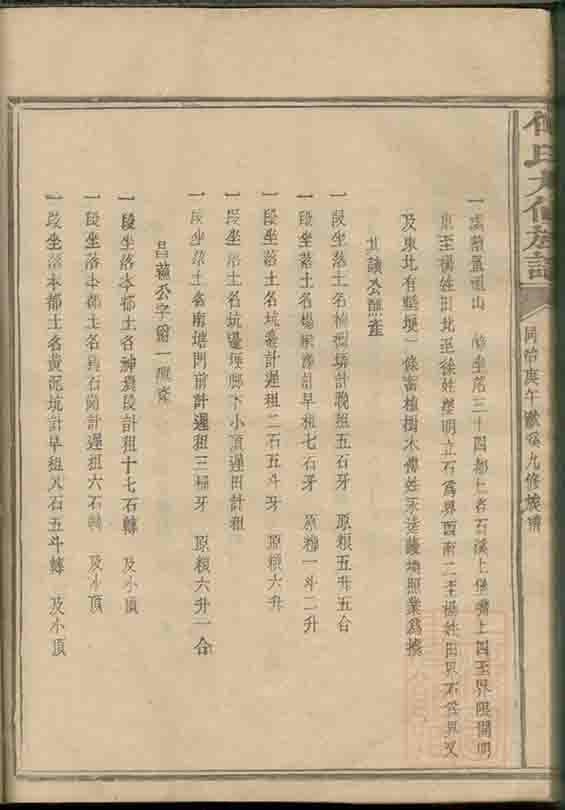 氏九修族譜
同治庚午歲 九修族譜
山 坐落三十四都土名石溪上 上四至界限開明
東至楊姓田北至徐姓塋明立石為界西南二至楊姓田界 又
及東北有墾埂一條蓄植樹木傅姓永遠護墳照業為據
其謨公醮產
一段坐落土名 墳計晚租五石牙 原糧五升五合
一段坐落土名楊家 計早租七石牙 原糧一斗二升
一段坐落土名坑邊計遲租二石五斗牙 原糧六升
一段坐落土名坑邊埂 下小頃遲田計租
一段坐落土名南 門前計遲租三 牙 原糧六升一合
昌 公字 一 產
一段坐落本都土名神 段計租十七石轉 及小頃
一段坐落本都土名 石崗計遲租六石轉 及小頃
一段坐落本都土名黃泥坑計早租八石五斗轉 及小頃